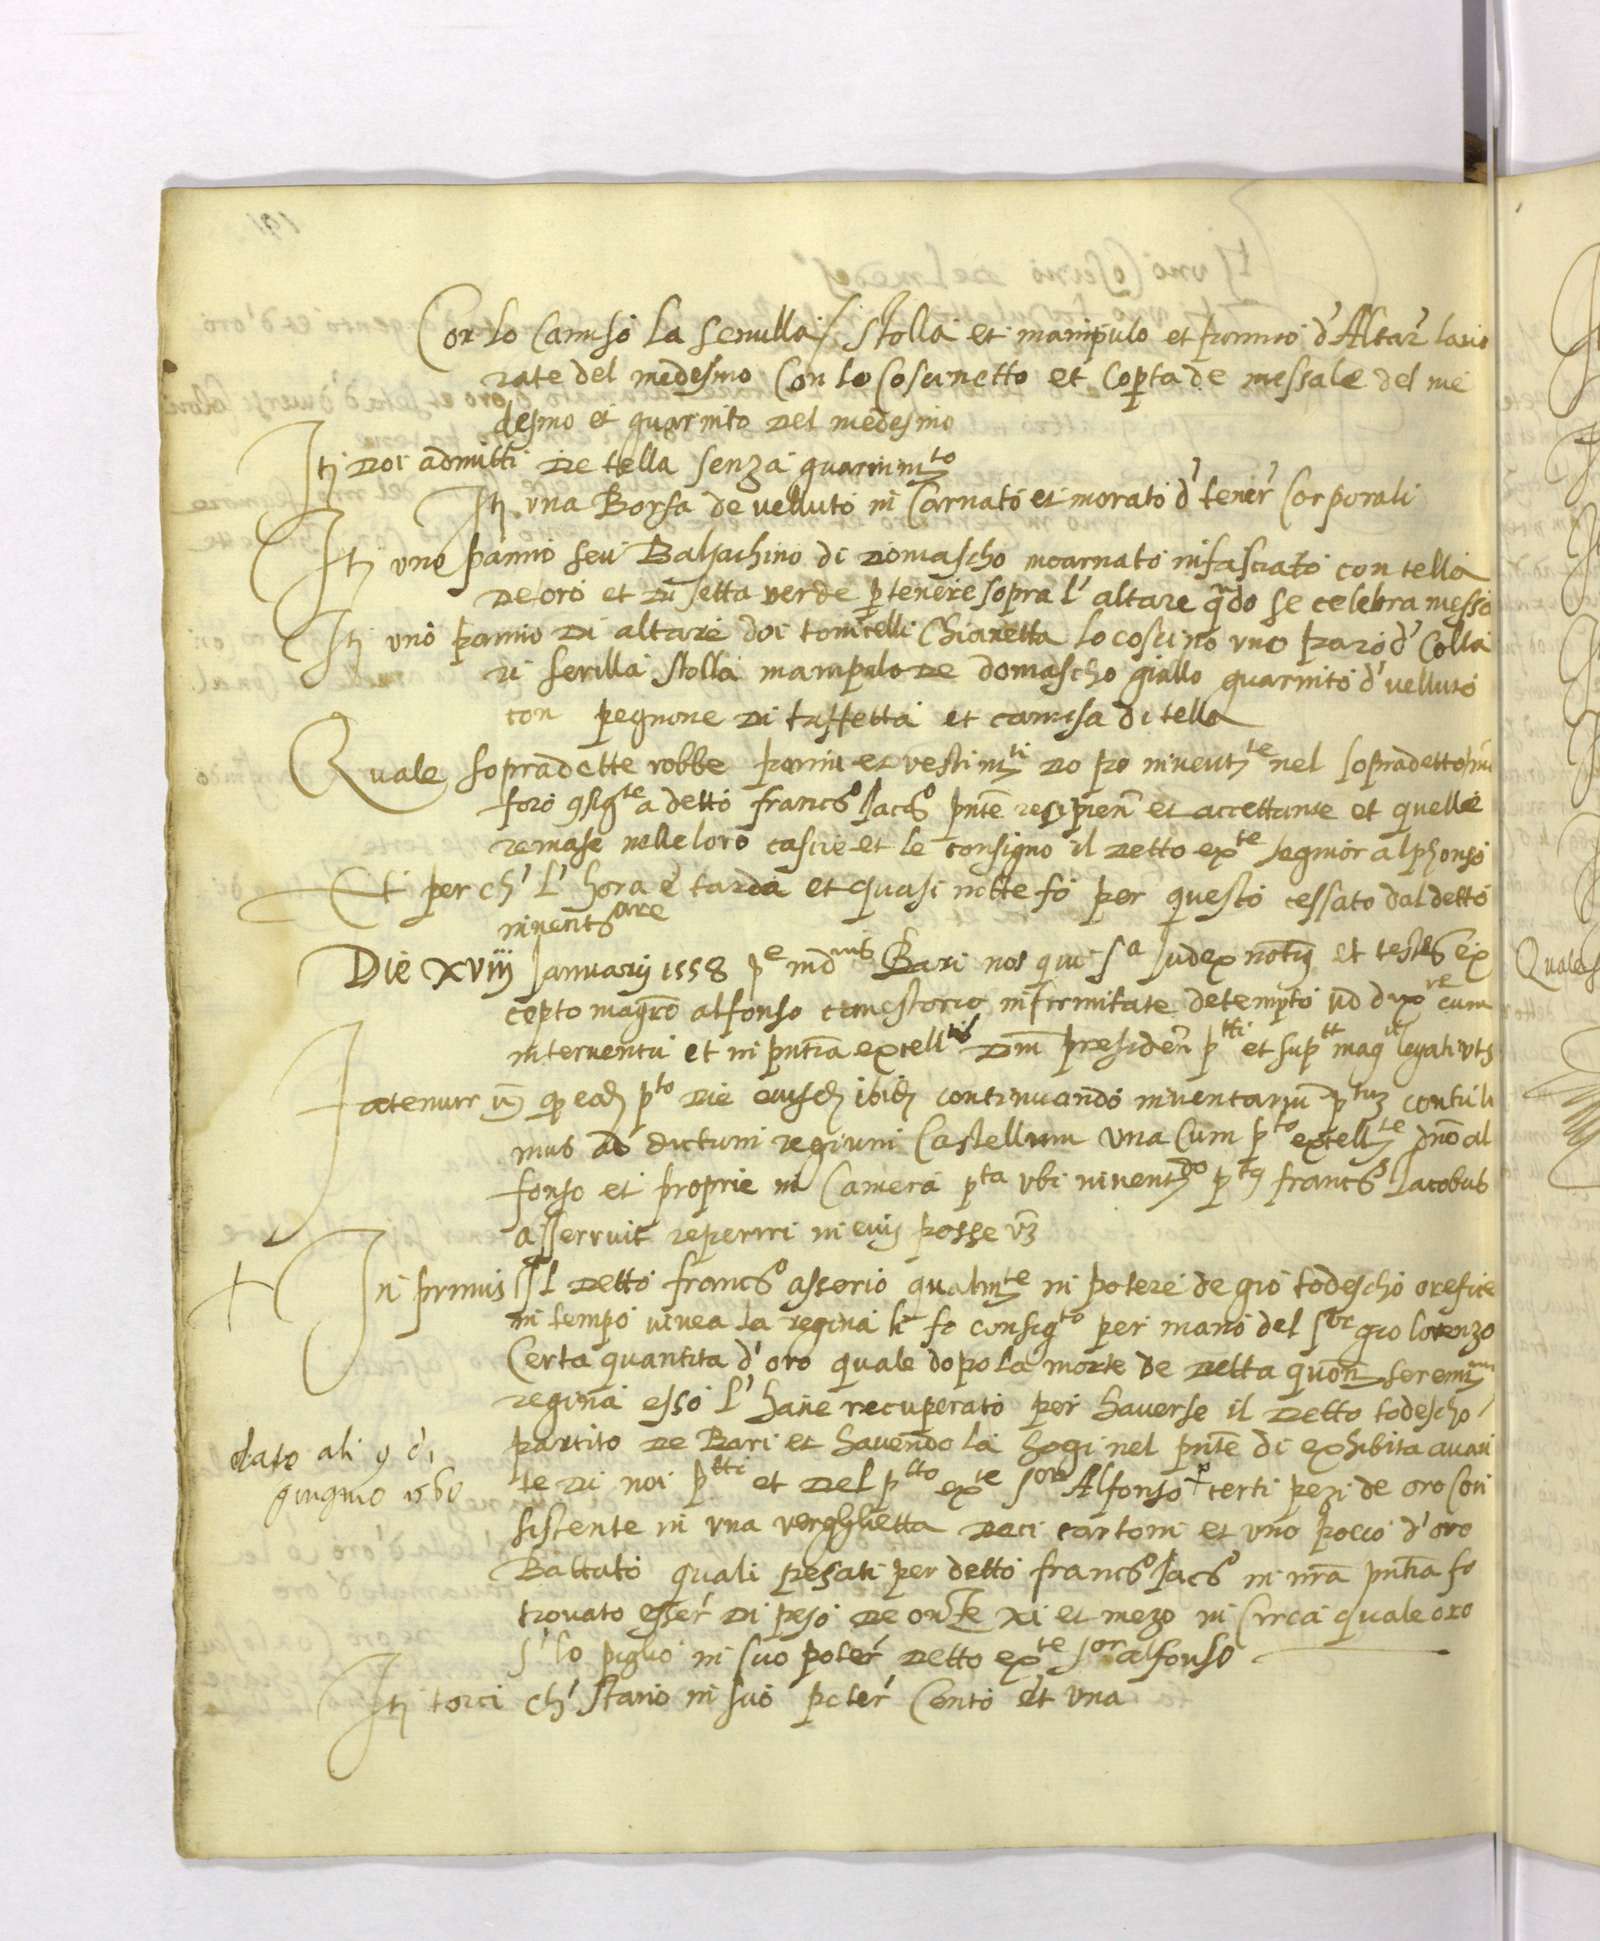 Con lo Camiso la serrulla / stolla et manipulo et pannio d' Altar' lavo
rate del medesmo Con lo Coscinetto et Coperta de messale del me
desmo et guarnito del medesmo
Itj Doi admitti de tella senza guarnimto
Itj una Borsa de velluto in Carnato et morato d' tener' Corporali
Itj uno pannio seu Baldachino di domascho incarnato infasciato con tella
de oro et di setta verde p tenere sopra l' altare qndo se celebra messa
Itj uno pannio di altare doi tonicelli Chianetta lo coscino uno paro d' Colla
ri serilla stolla manipulo de domascho giallo guarnito d' velluto
con pegnone di taffetta et camisa di tella
Quale sopradette robbe panni et vestimti do po inventte nel sopradetto
foro 9sigte a detto francso Jacso pnte recipien et accettante et quelle
remase nelle loro cascie et le consigno il detto exte segnior alphonso
Et per ch' l' hora è tarda et quasi notte fo per questo cessato dal detto
inventare
Die xviiij Januarij 1558 pe indnis Bari nos qui sa Judex notus et testes ex
cepto magco alfonso canestorio infirmitate detempto
interventu et in pntia excelltis Dni presiden ptti et supt mag legati
fatemur qp eod pto die eiusd ibid continuando inventarium ptum contuli
mus ad dictum regium Castellum una Cum pto excellte dno al
fonso et proprie in Camera pta ubi inventdo ptus francs Jacobus
asserruit reperiri in eius posse
In primis Il detto francso asserio qualmte in potere de gio todescho orefice
in tempo vivea la regina li fo consigto per mano del sor gio lorenzo
Certa quantita d' oro quale dopo la morte de detta quon serenima
regina esso l' have recuperato per haverse il detto todescho
partito de Bari et havendola hogi nel pnte di exhibita avan
te di noi ptti et del ptto exte sor Alfonso certi pezi de oro con
sistente in una verghetta deci cartoni et uno poco d' oro
Battato quali pesati per detto francso Jacso in nra pntia fo
trovato esser' di peso de onze xi et mezo in Circa quale oro
s' lo piglio in suo poter' detto exte sor alfonso
Itj torci ch' stano in suo poter' Cento et una
dato ali 9 di
giugnio 1560